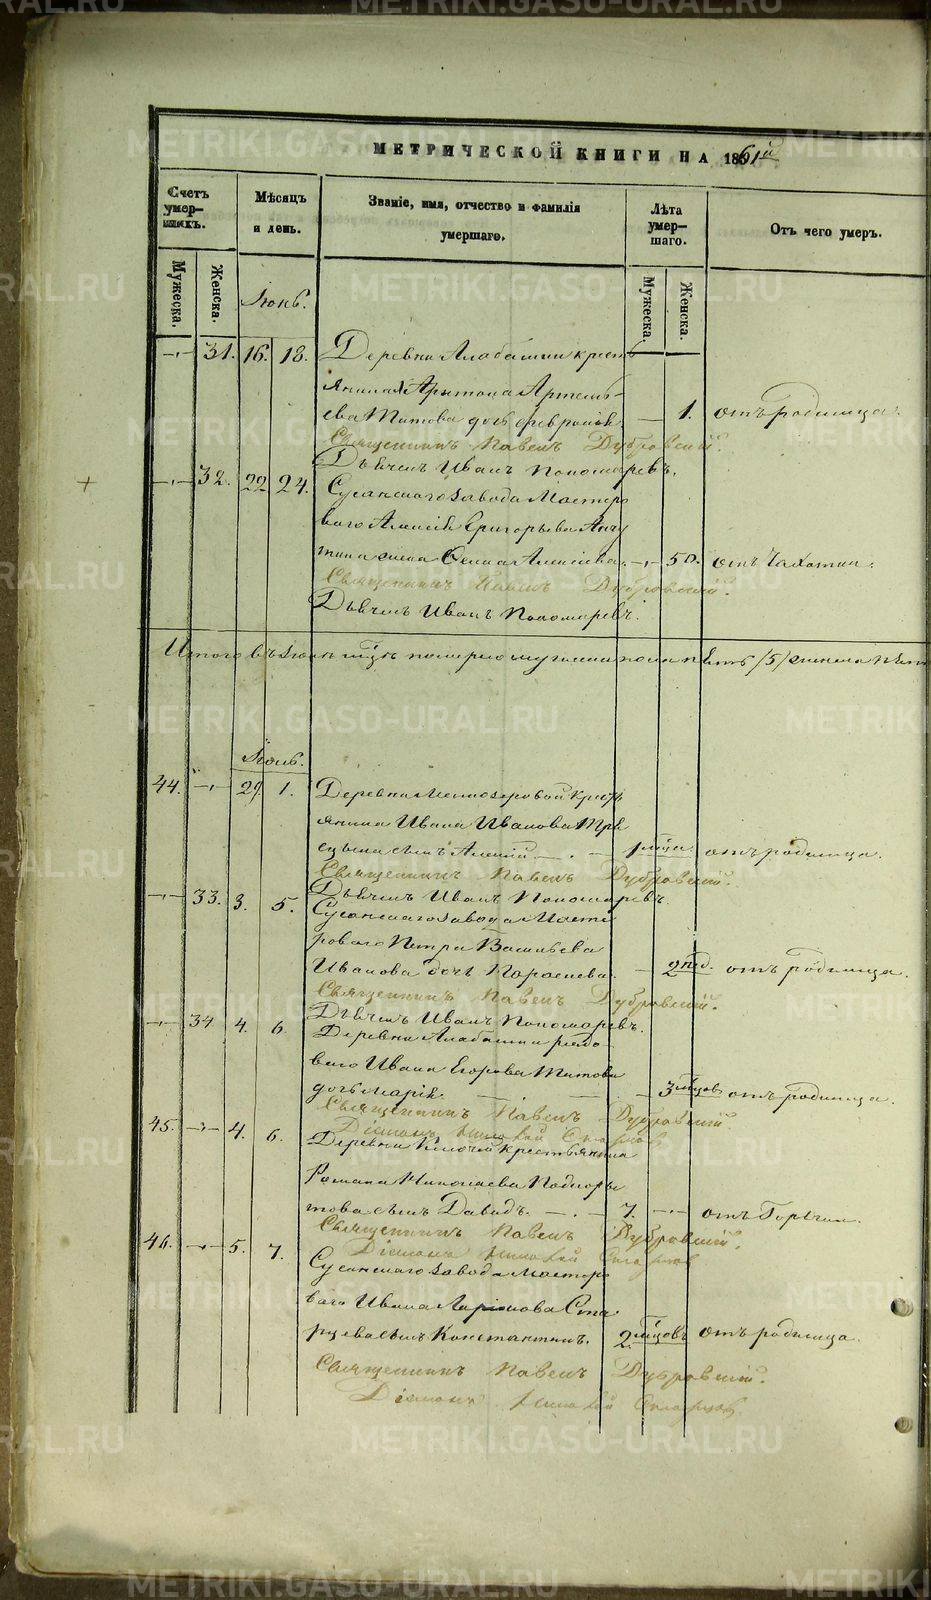 МЕТРИЧЕСКОЙ КНИГИ НА 1861й
Счетъ умер-шихъ.
Мѣсяцъ и день.
Званіе, имя, отчество и фамилія умершаго.
Лѣта умер-шаго.
Отъ чего умеръ.
Мужеска.
Женска.
Мужеска.
Женска.
Іюнь.
31. 16. 18. Деревни Алабашки кресть
янина Артемь-
ева Титова дочь 1. отъ родимца.
Священникъ Павелъ Дубровскій.
Дьячекъ Иванъ Пономаревъ.
32. 22 24. Сусанскаго завода Мастеро
ваго Алексѣя Григорьева
жена Алексѣева. 50. отъ Чахотки.
Священникъ Павелъ Дубровскій.
Дьячекъ Иванъ Пономаревъ.
Итого въ Іюнѣ померло мужеска пола пять /5/ женска пять
Іюль.
44. 29 1. Деревни крестья
янина Ивана Иванова
сынъ Алексій 1 мѣсца отъ родимца.
Священникъ Павелъ Дубровскій.
Дьячекъ Иванъ Пономаревъ.
33. 3. 5. Сусанскаго завода Масте
роваго Петра Васильева
Иванова дочь Параскева. 2 нед. отъ родимца.
Священникъ Павелъ Дубровскій.
Дьячекъ Иванъ Пономаревъ.
34 4. 6. Деревни Алабашки рядо
ваго Ивана Егорова Титова
дочь Марія. 3 мѣсцов отъ родимца.
Священникъ Павелъ Дубровскій.
Діаконъ Николай
45. 4. 6. Деревни Ключей крестьянина
Романа Николаева Подкоры
това сынъ Давидъ. 7. отъ Горячки.
Священникъ Павелъ Дубровскій.
Діаконъ Николай
46. 5. 7. Сусанскаго завода Мастеро
ваго Ивана Ларіонова Ста
рцева сынъ Константинъ. 2 мѣсцовъ отъ родимца.
Священникъ Павелъ Дубровскій.
Діаконъ Николай
METRIKI.GASO-URAL.RU